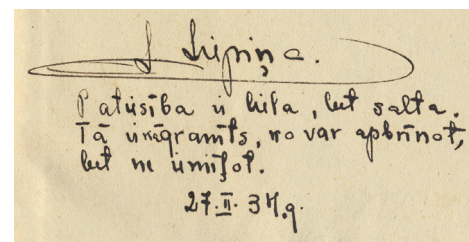 L Liepiņa.
Patiesība ir liela, bet salta.
Tā ir kā granīts, ko var apbrīnot,
bet ne iemīļot.
27.II.34.g.